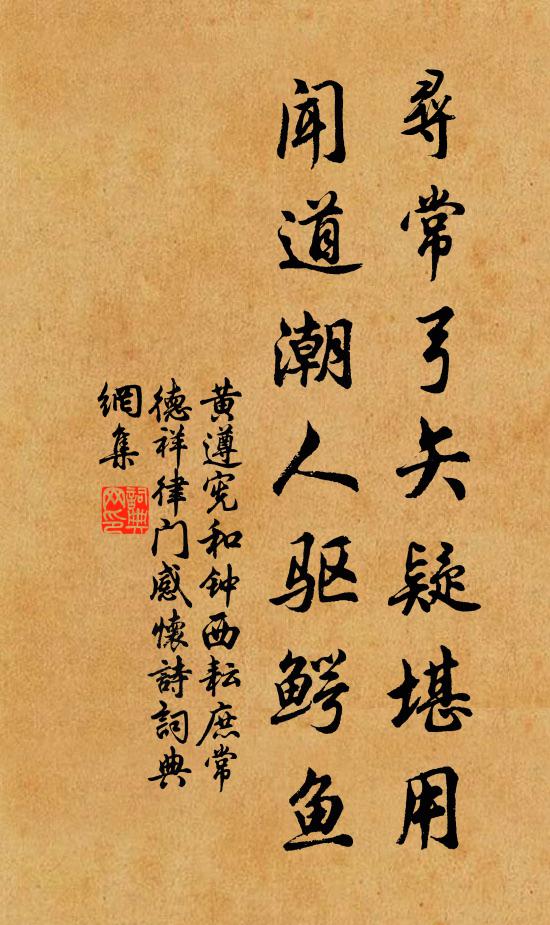 尋常弓矢疑堪用
闻道潮人驱鳄鱼
黄遵宪和钟西耘庶常
德祥律门感懷詩詞典
網集
詞典网印